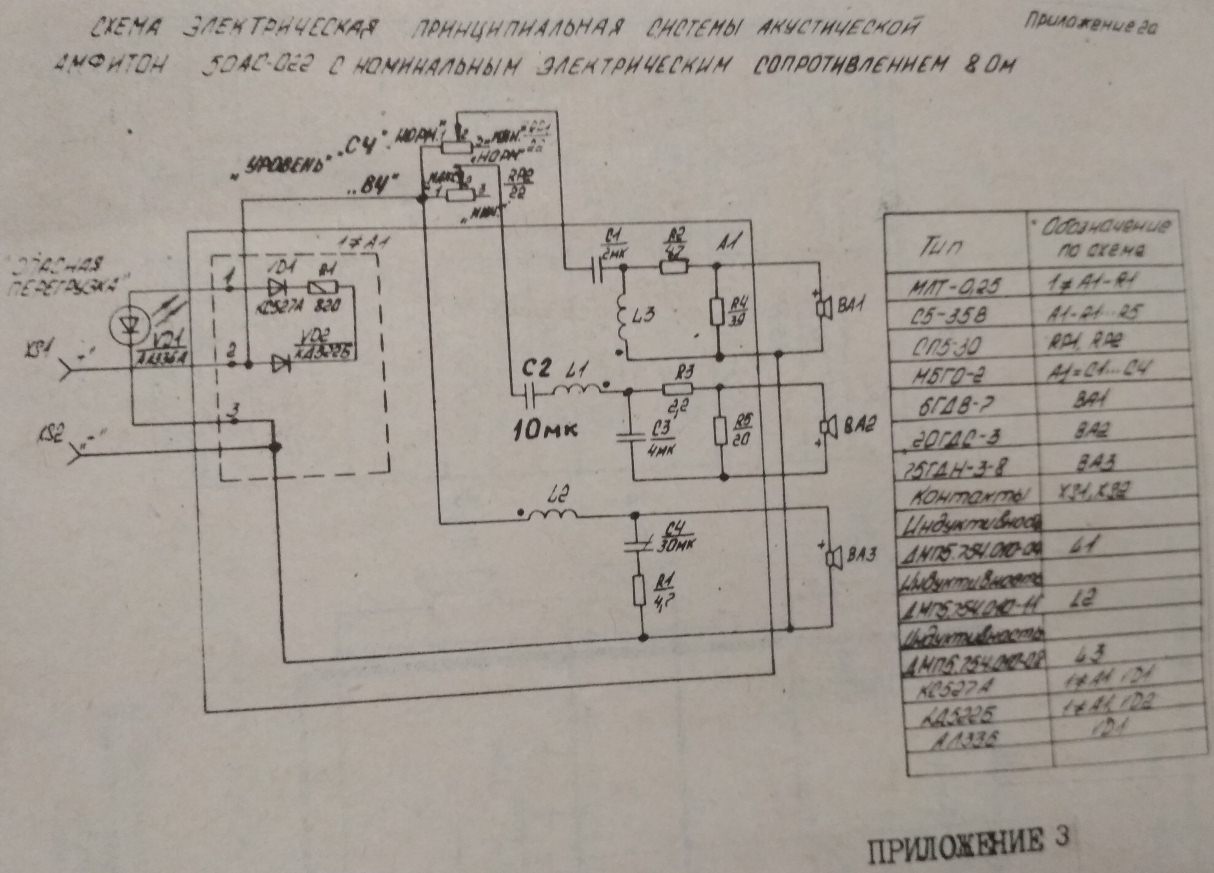 СХЕМА ЭЛЕКТРИЧЕСКАЯ ПРИНЦИПИАЛЬНАЯ СИСТЕМЫ АКУСТИЧЕСКОЙ
Приложение 2а
АМФИТОН 50АС-022 С НОМИНАЛЬНЫМ ЭЛЕКТРИЧЕСКИМ СОПРОТИВЛЕНИЕМ 8 Ом
"УРОВЕНЬ" "СЧ"
"НОРМ."
1 2 3
"МИН."
"НОРМ"
"ВЧ"
"МАКС"
1 2 3
RP2
22
"МИН."
"ОПАСНАЯ
ПЕРЕГРУЗКА"
1≠А1
1
VD1
R1
КС527А
820
VD1
АЛ336А
VD2
КД522Б
XS1
2
3
XS2 "-"
C1
2мк
R2
А1
L3
R4
39
+
BA1
C2
10мк
L1
R3
2,2
C3
4мк
R5
20
BA2
+
L2
C4
30мк
R1
4,7
+
BA3
Тип Обозначение
по схеме
МЛТ-0,25 1≠А1-R1
С5-35В А1-R1...R5
СП5-30 RP1, RP2
МБГО-2 А1=С1...С4
6ГДВ-7 ВА1
20ГДС-3 ВА2
75ГДН-3-8 ВА3
Контакты XS1, XS2
Индуктивнос
L1
Индуктивность
ДМП5.754.010-11 L2
Индуктивность
ДМП5.754.010-08 L3
КС527А 1≠А1 VD1
КД522Б 1≠А1, VD2
АЛ336 VD1
ПРИЛОЖЕНИЕ 3